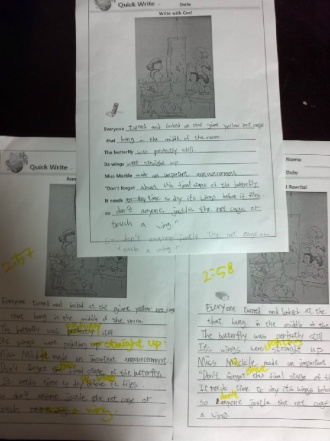 Quick Write
Date
Write with Cue!
Everyone turned and looked at the giant yellow net cage
that hung in the middle of the room
The butterfly was perfectly still
Its wings were straight up
Miss Mackle made an important announcement
"Don't forget about the final stage of the butterfly
It needs time to dry its wings before it flies
so don't anyone jostle the net cage or
touch a wing."
so don't anyone jostle the net cage or
touch a wing."
Quick Write
2:57
Everyone turned and looked at the giant yellow net cage
that hung in the middle of the room
The butterfly was perfectly still
Its wings were pointing straight up
Miss Mackle made an important announcement
Don't forget the final stage of the butterfly
It needs time to dry before it flies
so don't anyone jostle the net cage or
touch a wing
Name
Date
Rewrite!
2:58
Everyone turned and looked at the
that hung in the middle of the
The butterfly was perfectly still
Its wings were straight up
Miss Mackle made an important
Don't forget the final stage of
It needs time to dry its wings before
so anyone jostle the net cage or
a wing